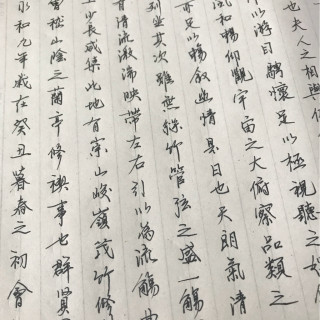 永和九年歲在癸丑暮春之初會
會稽山陰之蘭亭修禊事也群賢
少長咸集此地有崇山峻嶺茂竹修
清流激湍映帶左右引以為流觴
列坐其次雖無絲竹管弦之盛一觴
亦足以暢敘幽情是日也天朗氣清
風和暢仰觀宇宙之大俯察品類之
以游目騁懷足以極視聽之
也夫人之相與